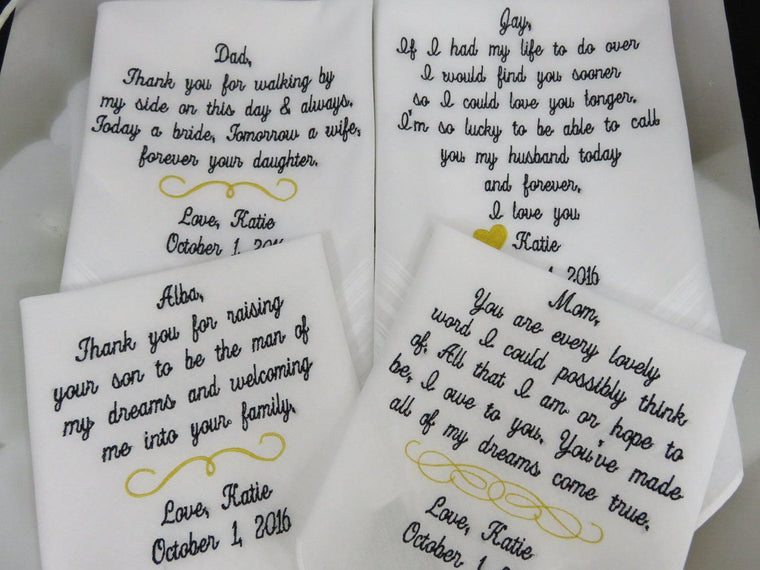 Dad,
Thank you for walking by
my side on this day & always.
Today a bride, Tomorrow a wife,
forever your daughter.
Love, Katie
October 1, 2016
Jay,
If I had my life to do over
I would find you sooner
so I could love you longer.
I'm so lucky to be able to call
you my husband today
and forever,
I love you
Katie
1, 2016
Alba,
Thank you for raising
your son to be the man of
my dreams and welcoming
me into your family.
Love, Katie
October 1, 2016
Mom,
You are every lovely
word I could possibly think
of. All that I am or hope to
be, I owe to you. You've made
all of my dreams come true.
Love, Katie
October 1,